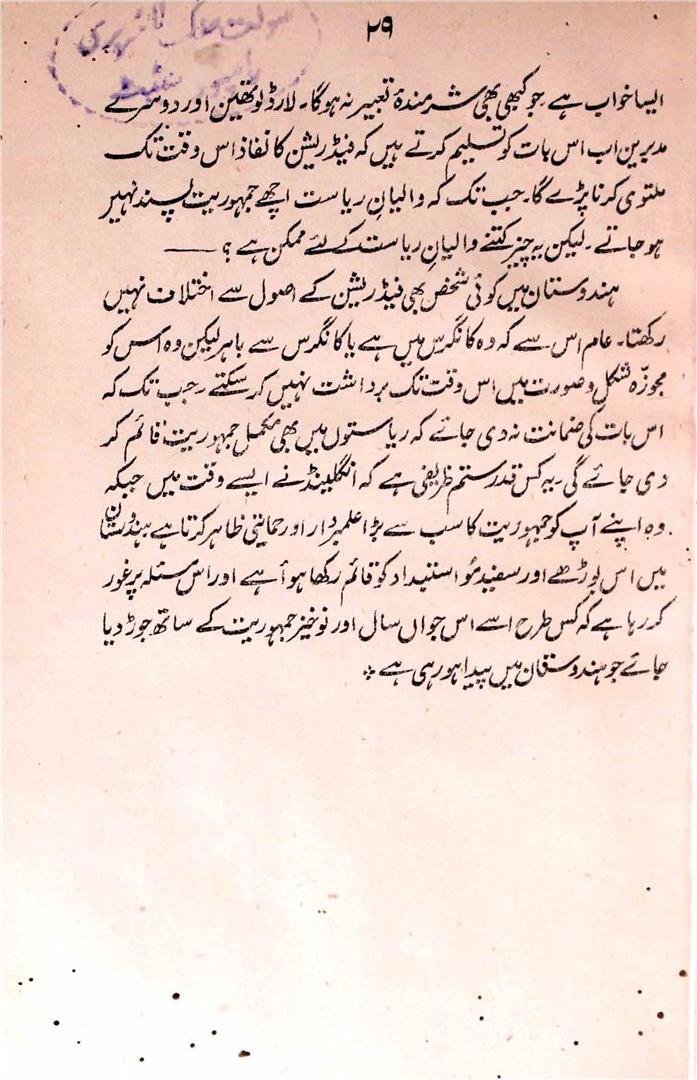 ۲۹
صولت پبلک لائبریری
ایسا خواب ہے جو کبھی بھی شرمندۂ تعبیر نہ ہوگا۔ لارڈ لوتھین اور دوسرے
مدبرین اب اس بات کو تسلیم کرتے ہیں کہ فیڈریشن کا نفاذ اس وقت تک
ملتوی کرنا پڑے گا۔ جب تک کہ والیانِ ریاست اچھے جمہوریت پسند نہیں
ہو جاتے۔ لیکن یہ چیز کتنے والیانِ ریاست کے لئے ممکن ہے ؟ ——
ہندوستان میں کوئی شخص بھی فیڈریشن کے اصول سے اختلاف نہیں
رکھتا۔ عام اس سے کہ وہ کانگرس میں ہے یا کانگرس سے باہر لیکن وہ اس کو
مجوزّہ شکل و صورت میں اس وقت تک برداشت نہیں کر سکتے۔ جب تک کہ
اس بات کی ضمانت نہ دی جائے کہ ریاستوں میں بھی مکمل جمہوریت قائم کر
دی جائے گی۔ یہ کس قدر ستم ظریفی ہے کہ انگلینڈ نے ایسے وقت میں جبکہ
وہ اپنے آپ کو جمہوریت کا سب سے بڑا علمبردار اور حمایتی ظاہر کرتا ہے ہندوستان
میں اس بوڑھے اور سفید مُو استبداد کو قائم رکھا ہوأ ہے اور اس مسئلہ پر غور
کر رہا ہے کہ کس طرح اسے اس جواں سال اور نوخیز جمہوریت کے ساتھ جوڑ دیا
جائے جو ہندوستان میں پیدا ہو رہی ہے ⁘